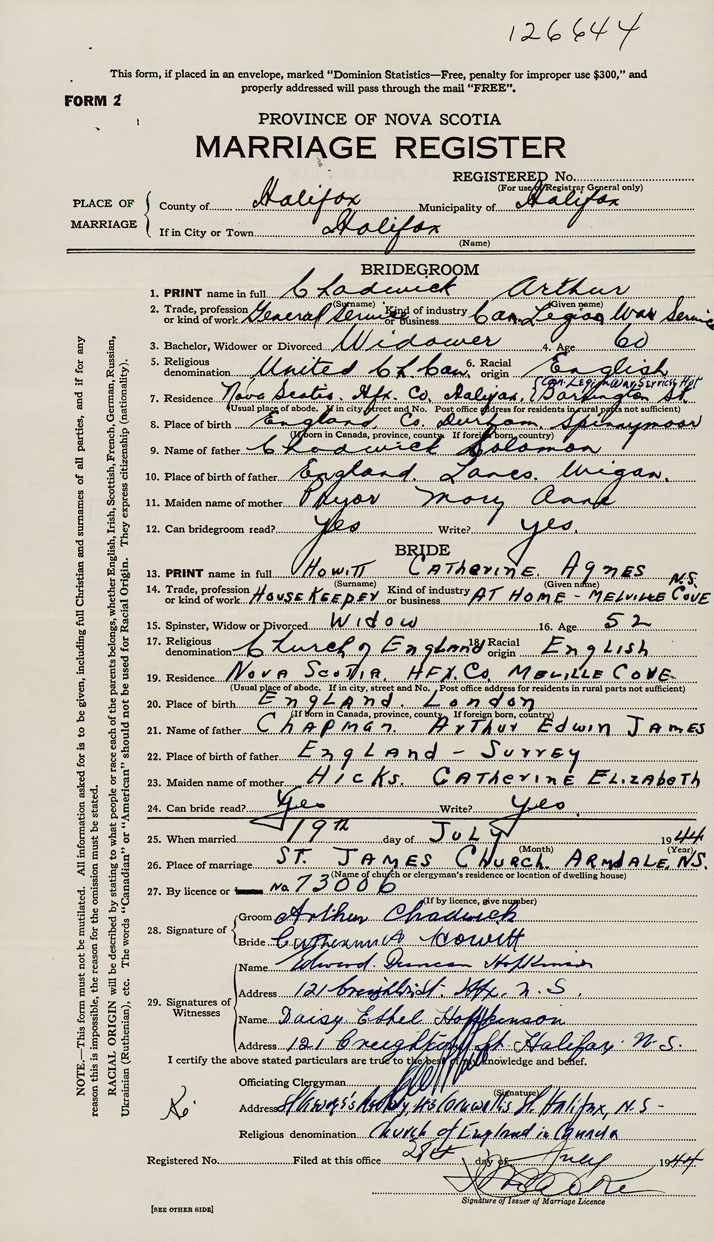 126644
This form, if placed in an envelope, marked "Dominion Statistics—Free, penalty for improper use $300," and
properly addressed will pass through the mail "FREE".
FORM 2
PROVINCE OF NOVA SCOTIA
MARRIAGE REGISTER
REGISTERED No.
(For use of Registrar General only)
PLACE OF MARRIAGE
County of Halifax Municipality of Halifax
If in City or Town Halifax
(Name)
BRIDEGROOM
1. PRINT name in full Chadwick Arthur
(Surname) (Given name)
2. Trade, profession or kind of work General Service Kind of industry or business Can. Legion War Service
3. Bachelor, Widower or Divorced Widower 4. Age 60
5. Religious denomination United Ch. Can. 6. Racial origin English
(Can. Legion War Service Hst
7. Residence Nova Scotia. Hfx. Co. Halifax, Barrington St.
(Usual place of abode. If in city, street and No. Post office address for residents in rural parts not sufficient)
8. Place of birth England Co. Durham. Spennymoor
(If born in Canada, province, county. If foreign born, country)
9. Name of father Chadwick Solomon
10. Place of birth of father England. Lancs. Wigan.
11. Maiden name of mother Pryor Mary Anna
12. Can bridegroom read? Yes Write? Yes.
BRIDE
13. PRINT name in full Howitt Catherine Agnes
(Surname) (Given name) N.S.
14. Trade, profession or kind of work Housekeeper Kind of industry or business At Home - Melville Cove
15. Spinster, Widow or Divorced Widow 16. Age 52
17. Religious denomination Church of England 18. Racial origin English
19. Residence Nova Scotia. Hfx. Co. Melville Cove
(Usual place of abode. If in city, street and No. Post office address for residents in rural parts not sufficient)
20. Place of birth England. London
(If born in Canada, province, county. If foreign born, country)
21. Name of father Chapman. Arthur Edwin James
22. Place of birth of father England - Surrey
23. Maiden name of mother Hicks. Catherine Elizabeth
24. Can bride read? Yes Write? Yes.
25. When married 19th day of July 1944
(Month) (Year)
26. Place of marriage St. James Church. Armdale, N.S.
(Name of church or clergyman's residence or location of dwelling house)
27. By licence or No. 73006
(If by licence, give number)
28. Signature of
Groom Arthur Chadwick
Bride Catherine A Howitt
29. Signatures of Witnesses
Name Edward Duncan Hopkinson
Address 121 Creighton St. Hfx. N.S.
Name Daisy Ethel Hopkinson
Address 121 Creighton St. Halifax. N.S.
I certify the above stated particulars are true to the best of my knowledge and belief.
Officiating Clergyman
(Signature)
Address Cornwallis St. Halifax, N.S -
Religious denomination Church of England in Canada
Registered No. Filed at this office day of July 1944
Signature of Issuer of Marriage Licence
[SEE OTHER SIDE]
NOTE.—This form must not be mutilated. All information asked for is to be given, including full Christian and surnames of all parties, and if for any
reason this is impossible, the reason for the omission must be stated.
RACIAL ORIGIN will be described by stating to what people or race each of the parents belongs, whether English, Irish, Scottish, French, German, Russian,
Ukrainian (Ruthenian), etc. The words "Canadian" or "American" should not be used for Racial Origin. They express citizenship (nationality).